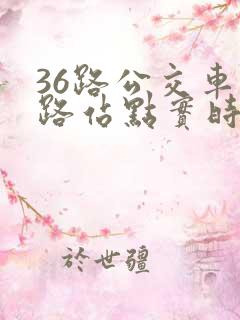 36路公交車
路佔點實時
於世疆